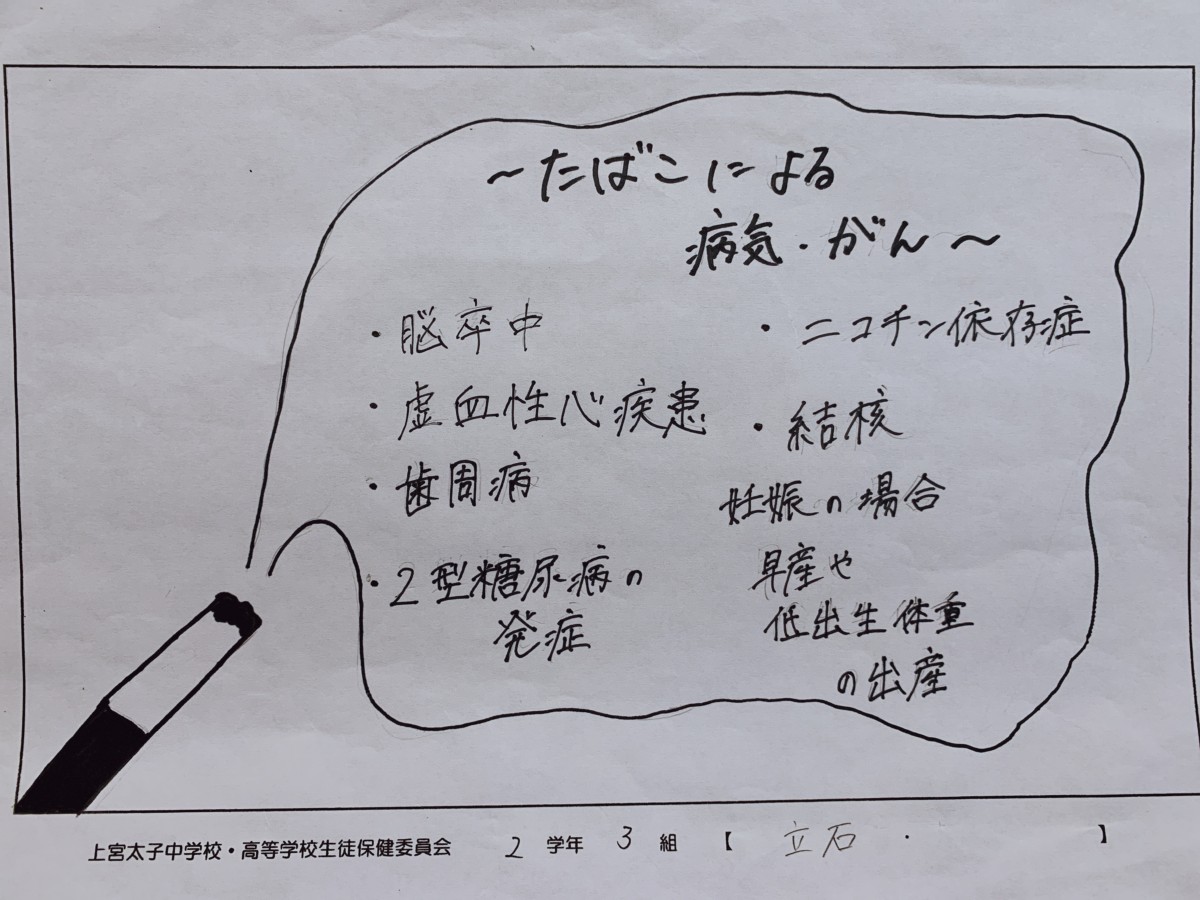 ～たばこによる
病気・がん～
・脳卒中
・虚血性心疾患
・歯周病
・2型糖尿病の
発症
・ニコチン依存症
・結核
妊娠の場合
早産や
低出生体重
の出産
上宮太子中学校・高等学校生徒保健委員会 2 学年 3 組 【 立石 ・ 】